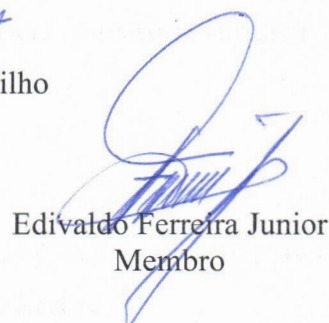 ilho
Edivaldo Ferreira Junior
Membro